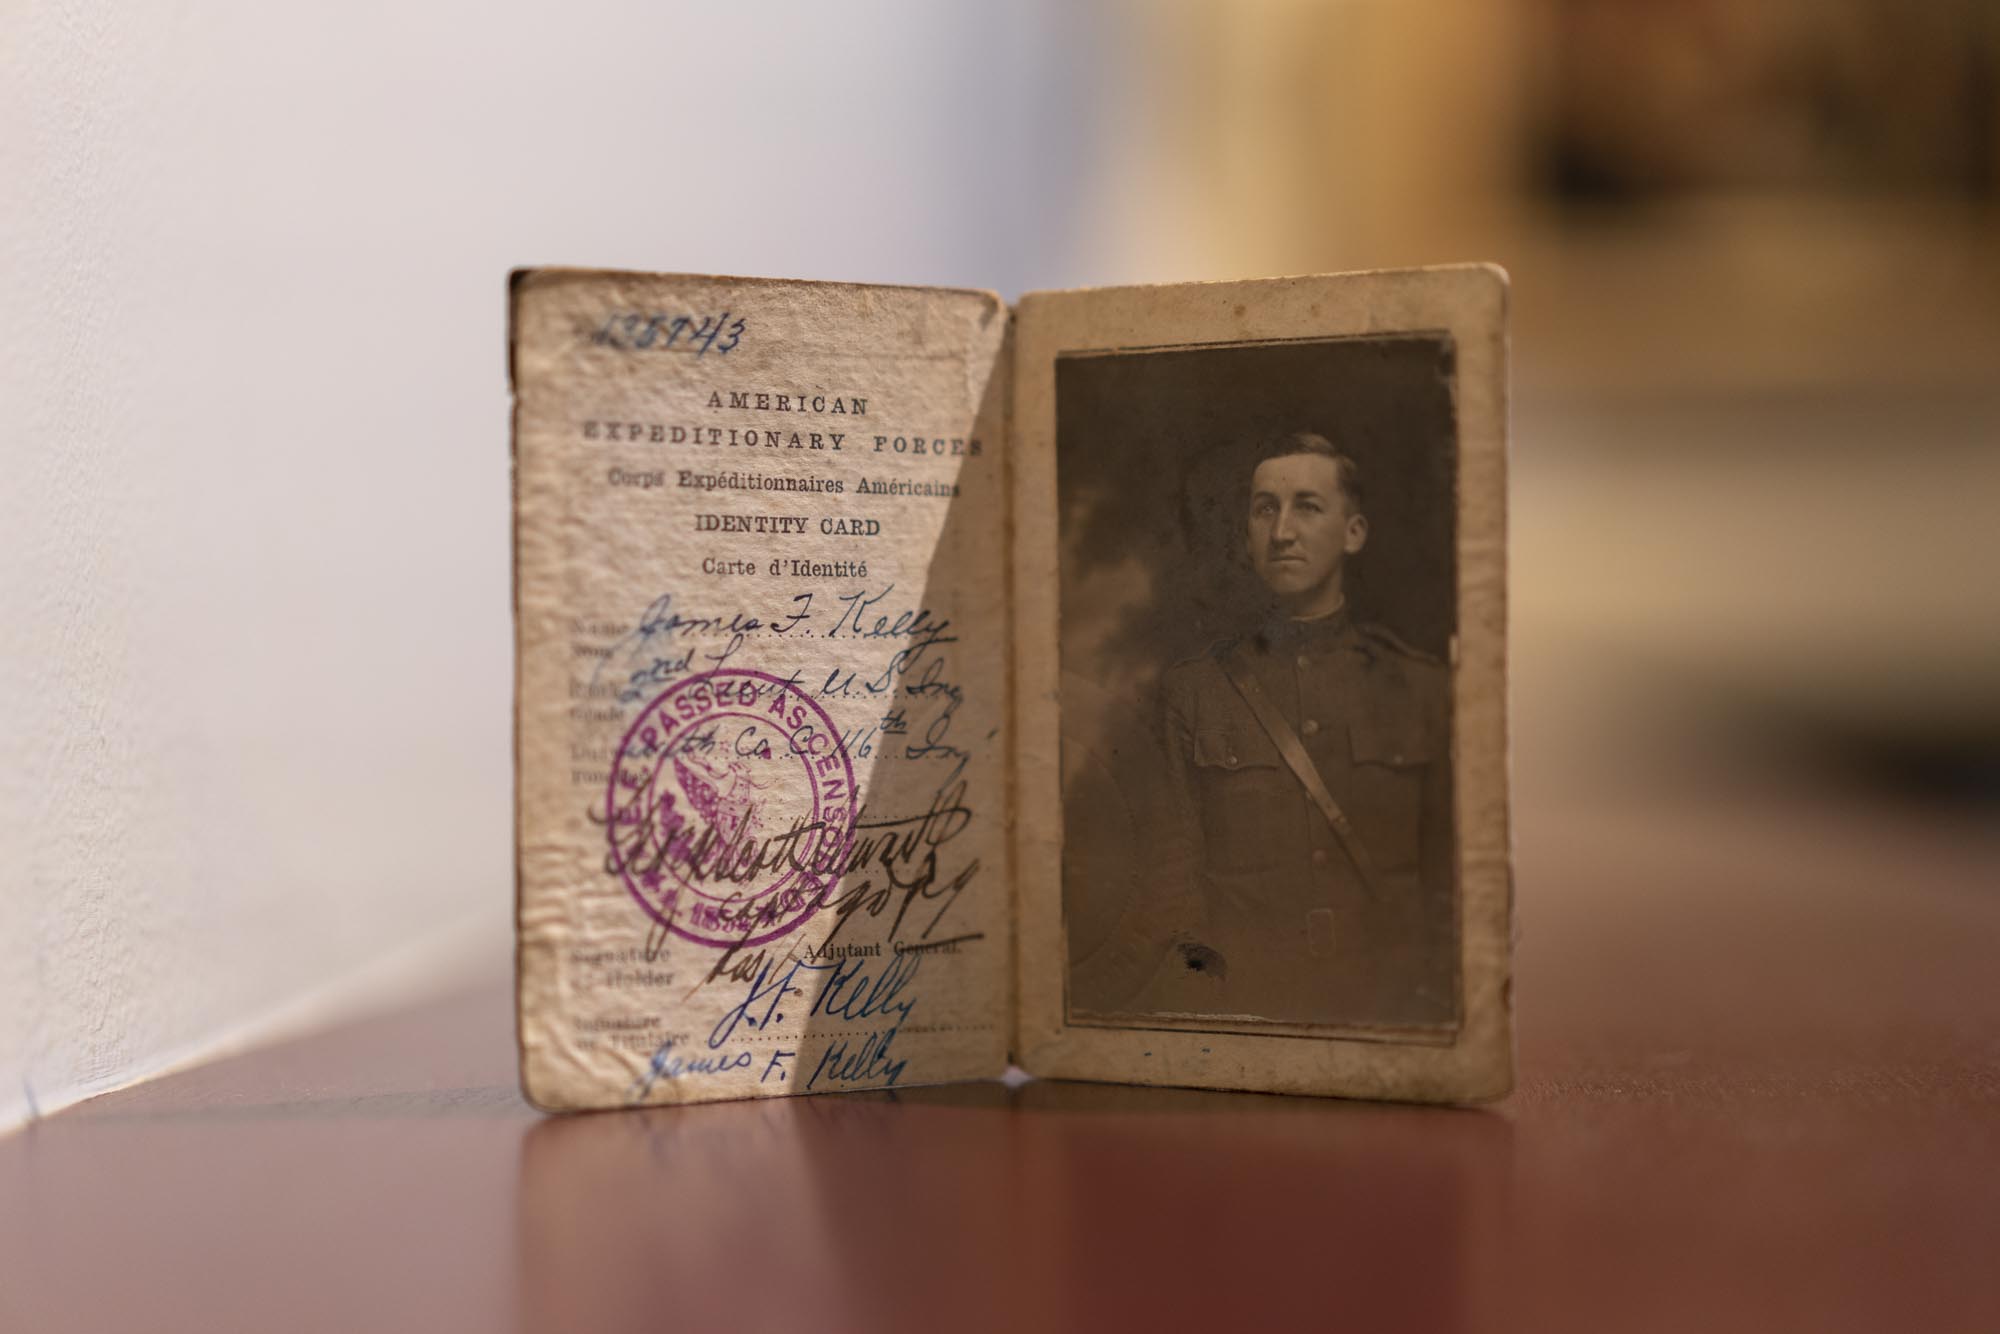 38743
AMERICAN
EXPEDITIONARY FORCES
Corps Expéditionnaires Américains
IDENTITY CARD
Carte d'Identité
Name James F. Kelly
Nom
2nd Lieut. U.S. Inf
Grade
with Co C 116th Inf
PASSED AS CENSORED
Capt
Adjutant General.
Signature
of Holder
J.F. Kelly
Signature
du Titulaire
James F. Kelly